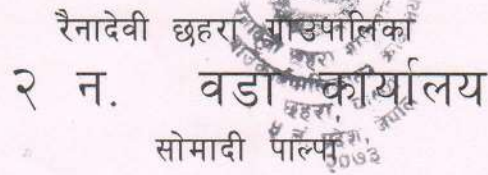 रैनादेवी छहरा गाउपालिका
२ न. वडा कार्यालय
सोमादी पाल्पा
२०७३